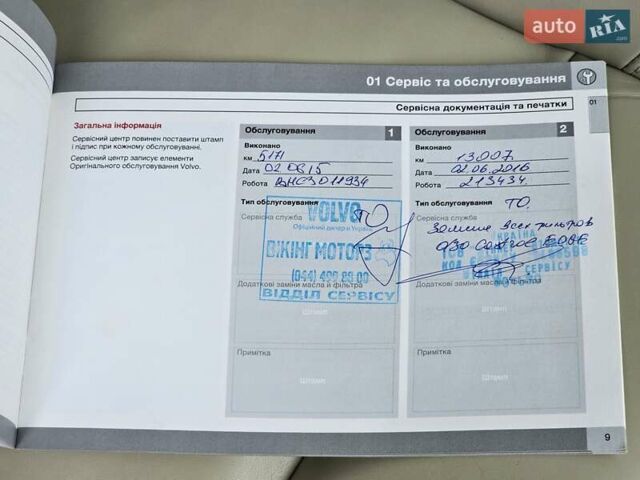 auto RIA.com
01 Сервіс та обслуговування
Сервісна документація та печатки
01
Загальна інформація
Сервісний центр повинен поставити штамп
і підпис при кожному обслуговуванні.
Сервісний центр записує елементи
Оригінального обслуговування Volvo.
Обслуговування 1
Виконано
км 5171
Дата 02.08.15
Робота
Тип обслуговування ТО
Сервісна служба
VOLVO
Офіційний дилер в Україні
ВІКІНГ МОТОРЗ
(044) 499 89 00
ВІДДІЛ СЕРВІСУ
Додаткові заміни масла й фільтра
Штамп
Примітка
Штамп
Обслуговування 2
Виконано
км 13007
Дата 02.06.2016
Робота 213434
Тип обслуговування ТО.
Сервісна служба
УКРАЇНА
КОД
ВІДДІЛ СЕРВІСУ
Додаткові заміни масла й фільтра
Штамп
Примітка
Штамп
9